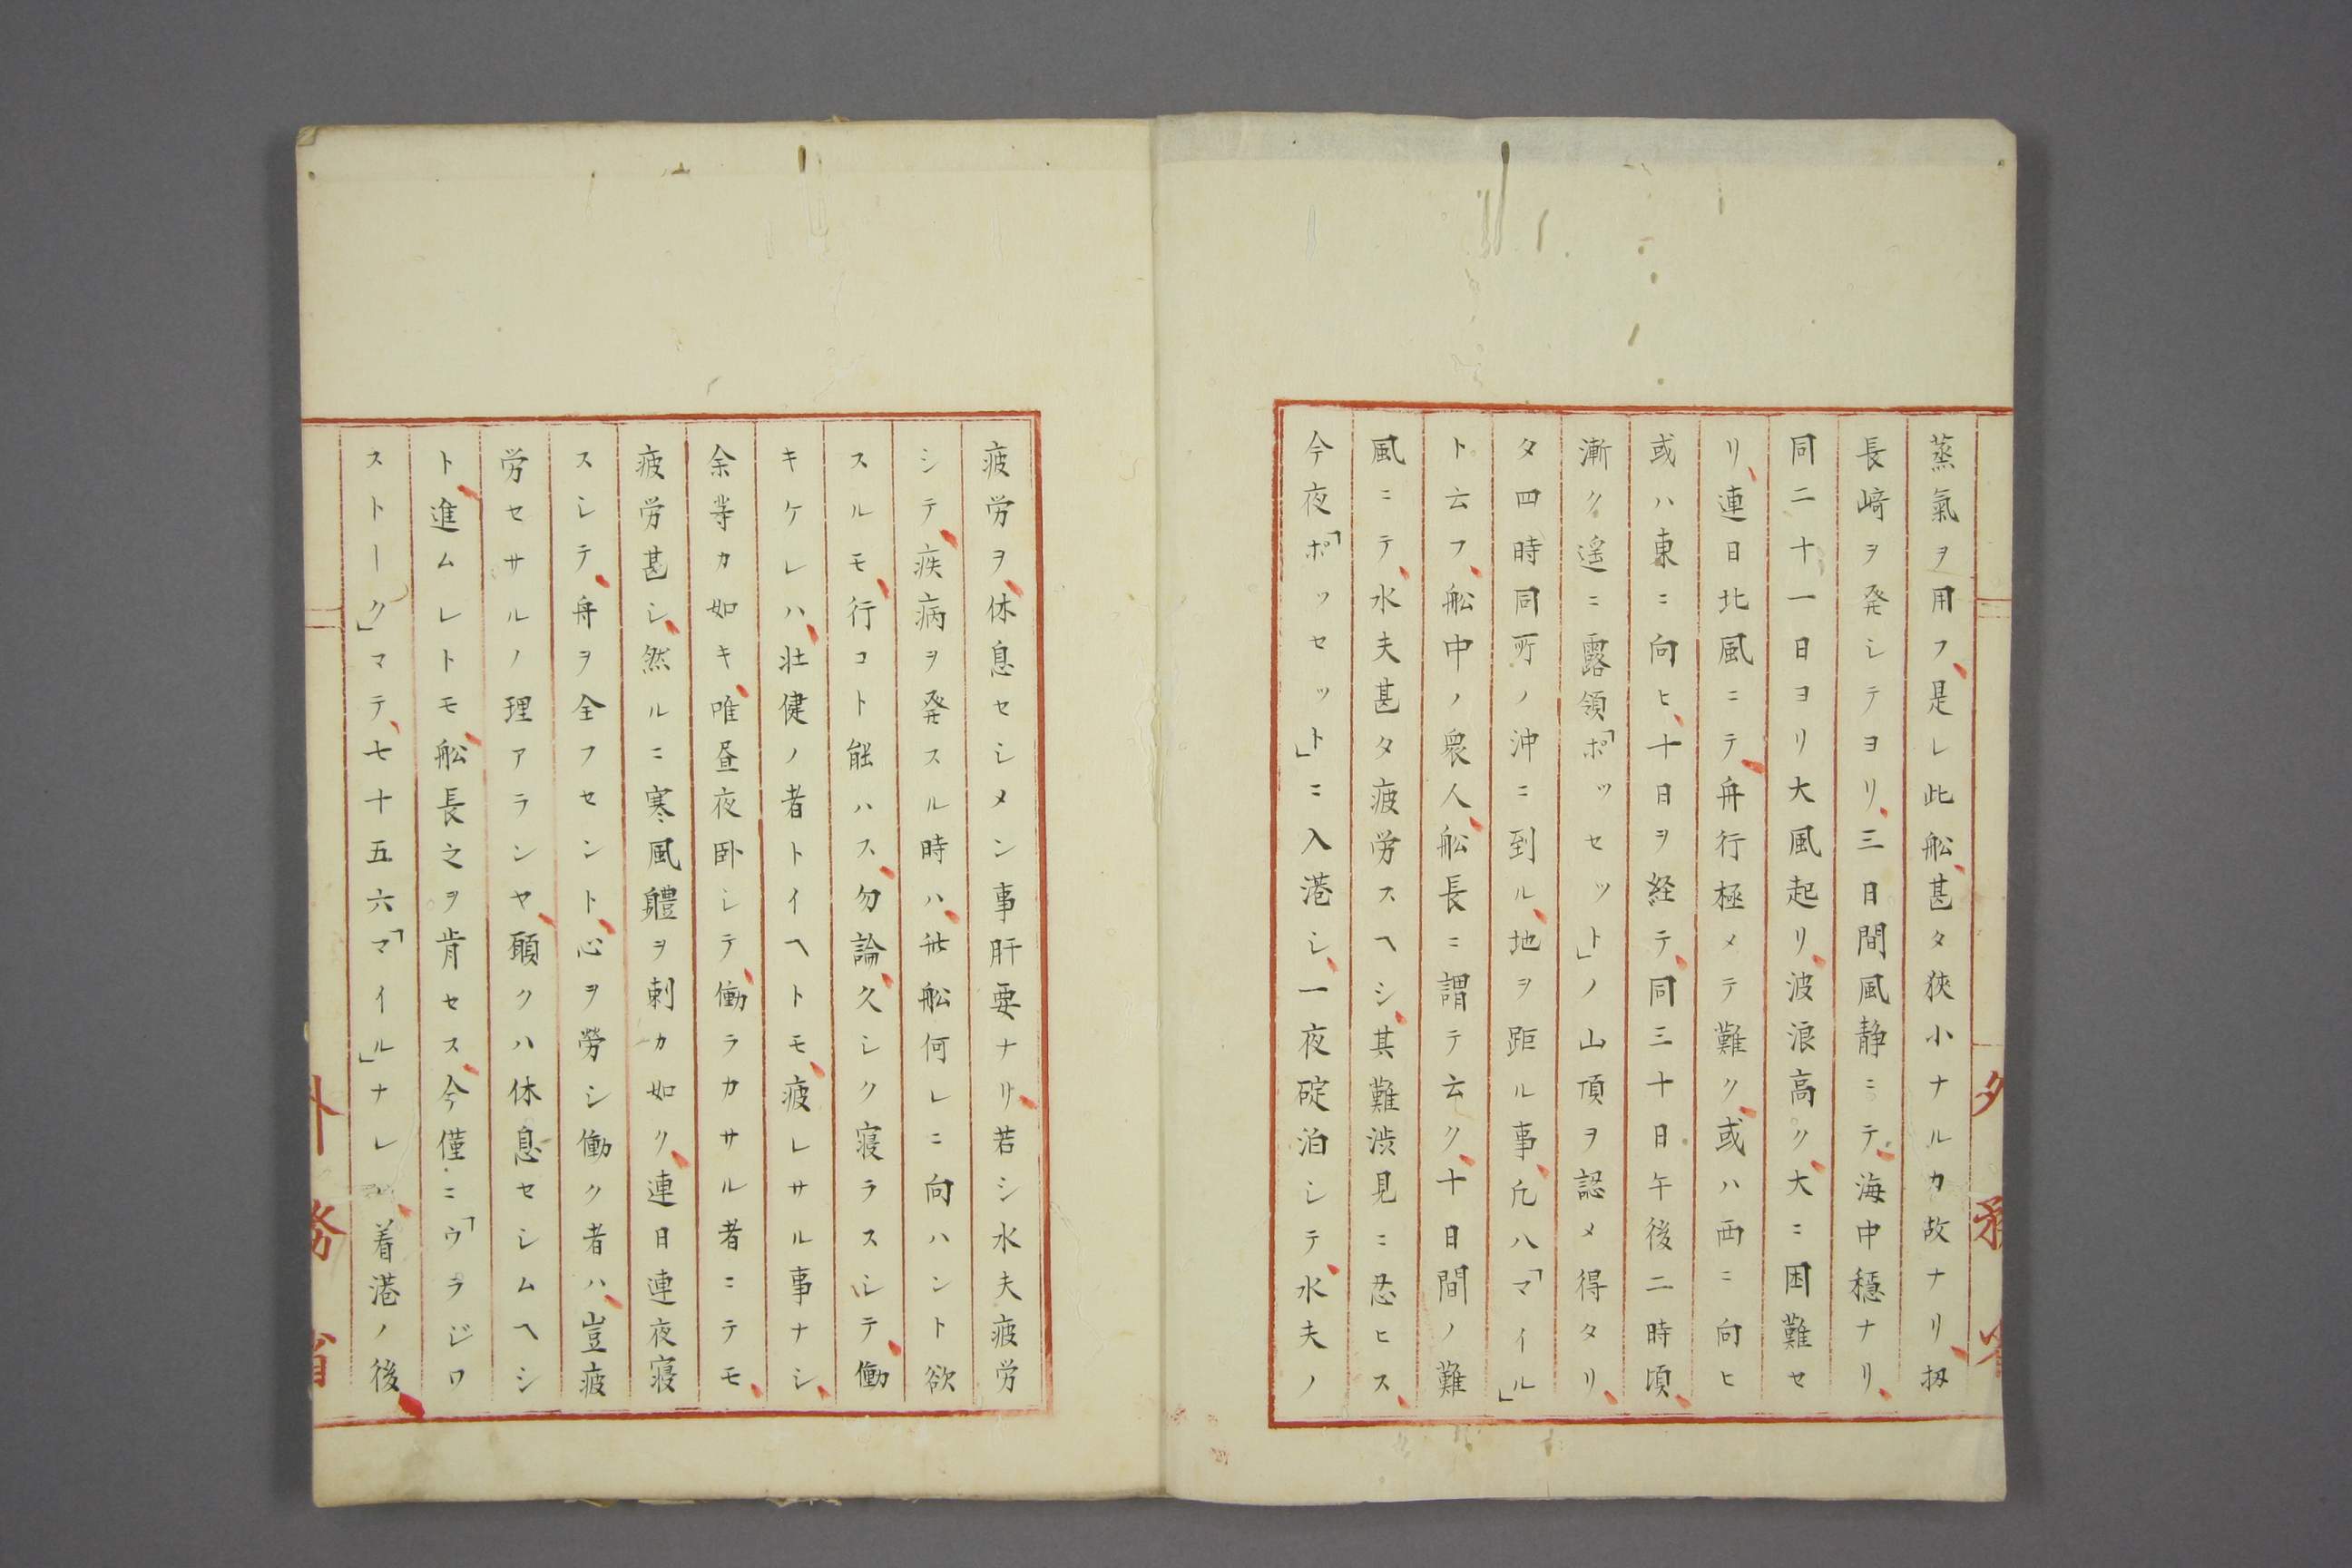 蒸氣ヲ用フ、是レ此舩、甚タ狹小ナルカ故ナリ、扨
長﨑ヲ発シテヨリ、三日間風静ニテ、海中穏ナリ、
同二十一日ヨリ大風起リ、波浪高ク、大ニ困難セ
リ、連日北風ニテ、舟行極メテ難ク、或ハ西ニ向ヒ
或ハ東ニ向ヒ、十日ヲ経テ、同三十日午後二時頃、
漸ク遙ニ露領「ポッセット」ノ山頂ヲ認メ得タリ、
夕四時同所ノ沖ニ到ル、地ヲ距ル事、凡八「マイル」
ト云フ、舩中ノ衆人、舩長ニ謂テ云ク、十日間ノ難
風ニテ、水夫甚タ疲労スヘシ、其難渋見ニ忍ヒス、
今夜「ポッセット」ニ入港シ、一夜碇泊シテ、水夫ノ
疲労ヲ、休息セシメン事肝要ナリ、若シ水夫疲労
シテ、疾病ヲ発スル時ハ、此舩何レニ向ハント欲
スルモ、行コト能ハス、勿論、久シク寝ラスシテ、働
キケレハ、壮健ノ者トイヘトモ、疲レサル事ナシ、
余等カ如キ、唯昼夜臥シテ、働ラカサル者ニテモ、
疲労甚シ、然ルニ寒風軆ヲ刺カ如ク、連日連夜寝
スシテ、舟ヲ全フセント、心ヲ勞シ働ク者ハ、豈疲
労セサルノ理アランヤ、願クハ休息セシムヘシ
ト、進ムレトモ、舩長之ヲ肯セス、今僅ニ「ウラジワ
ストーク」マテ、七十五六「マイル」ナレハ、着港ノ後、
外務省
外務省